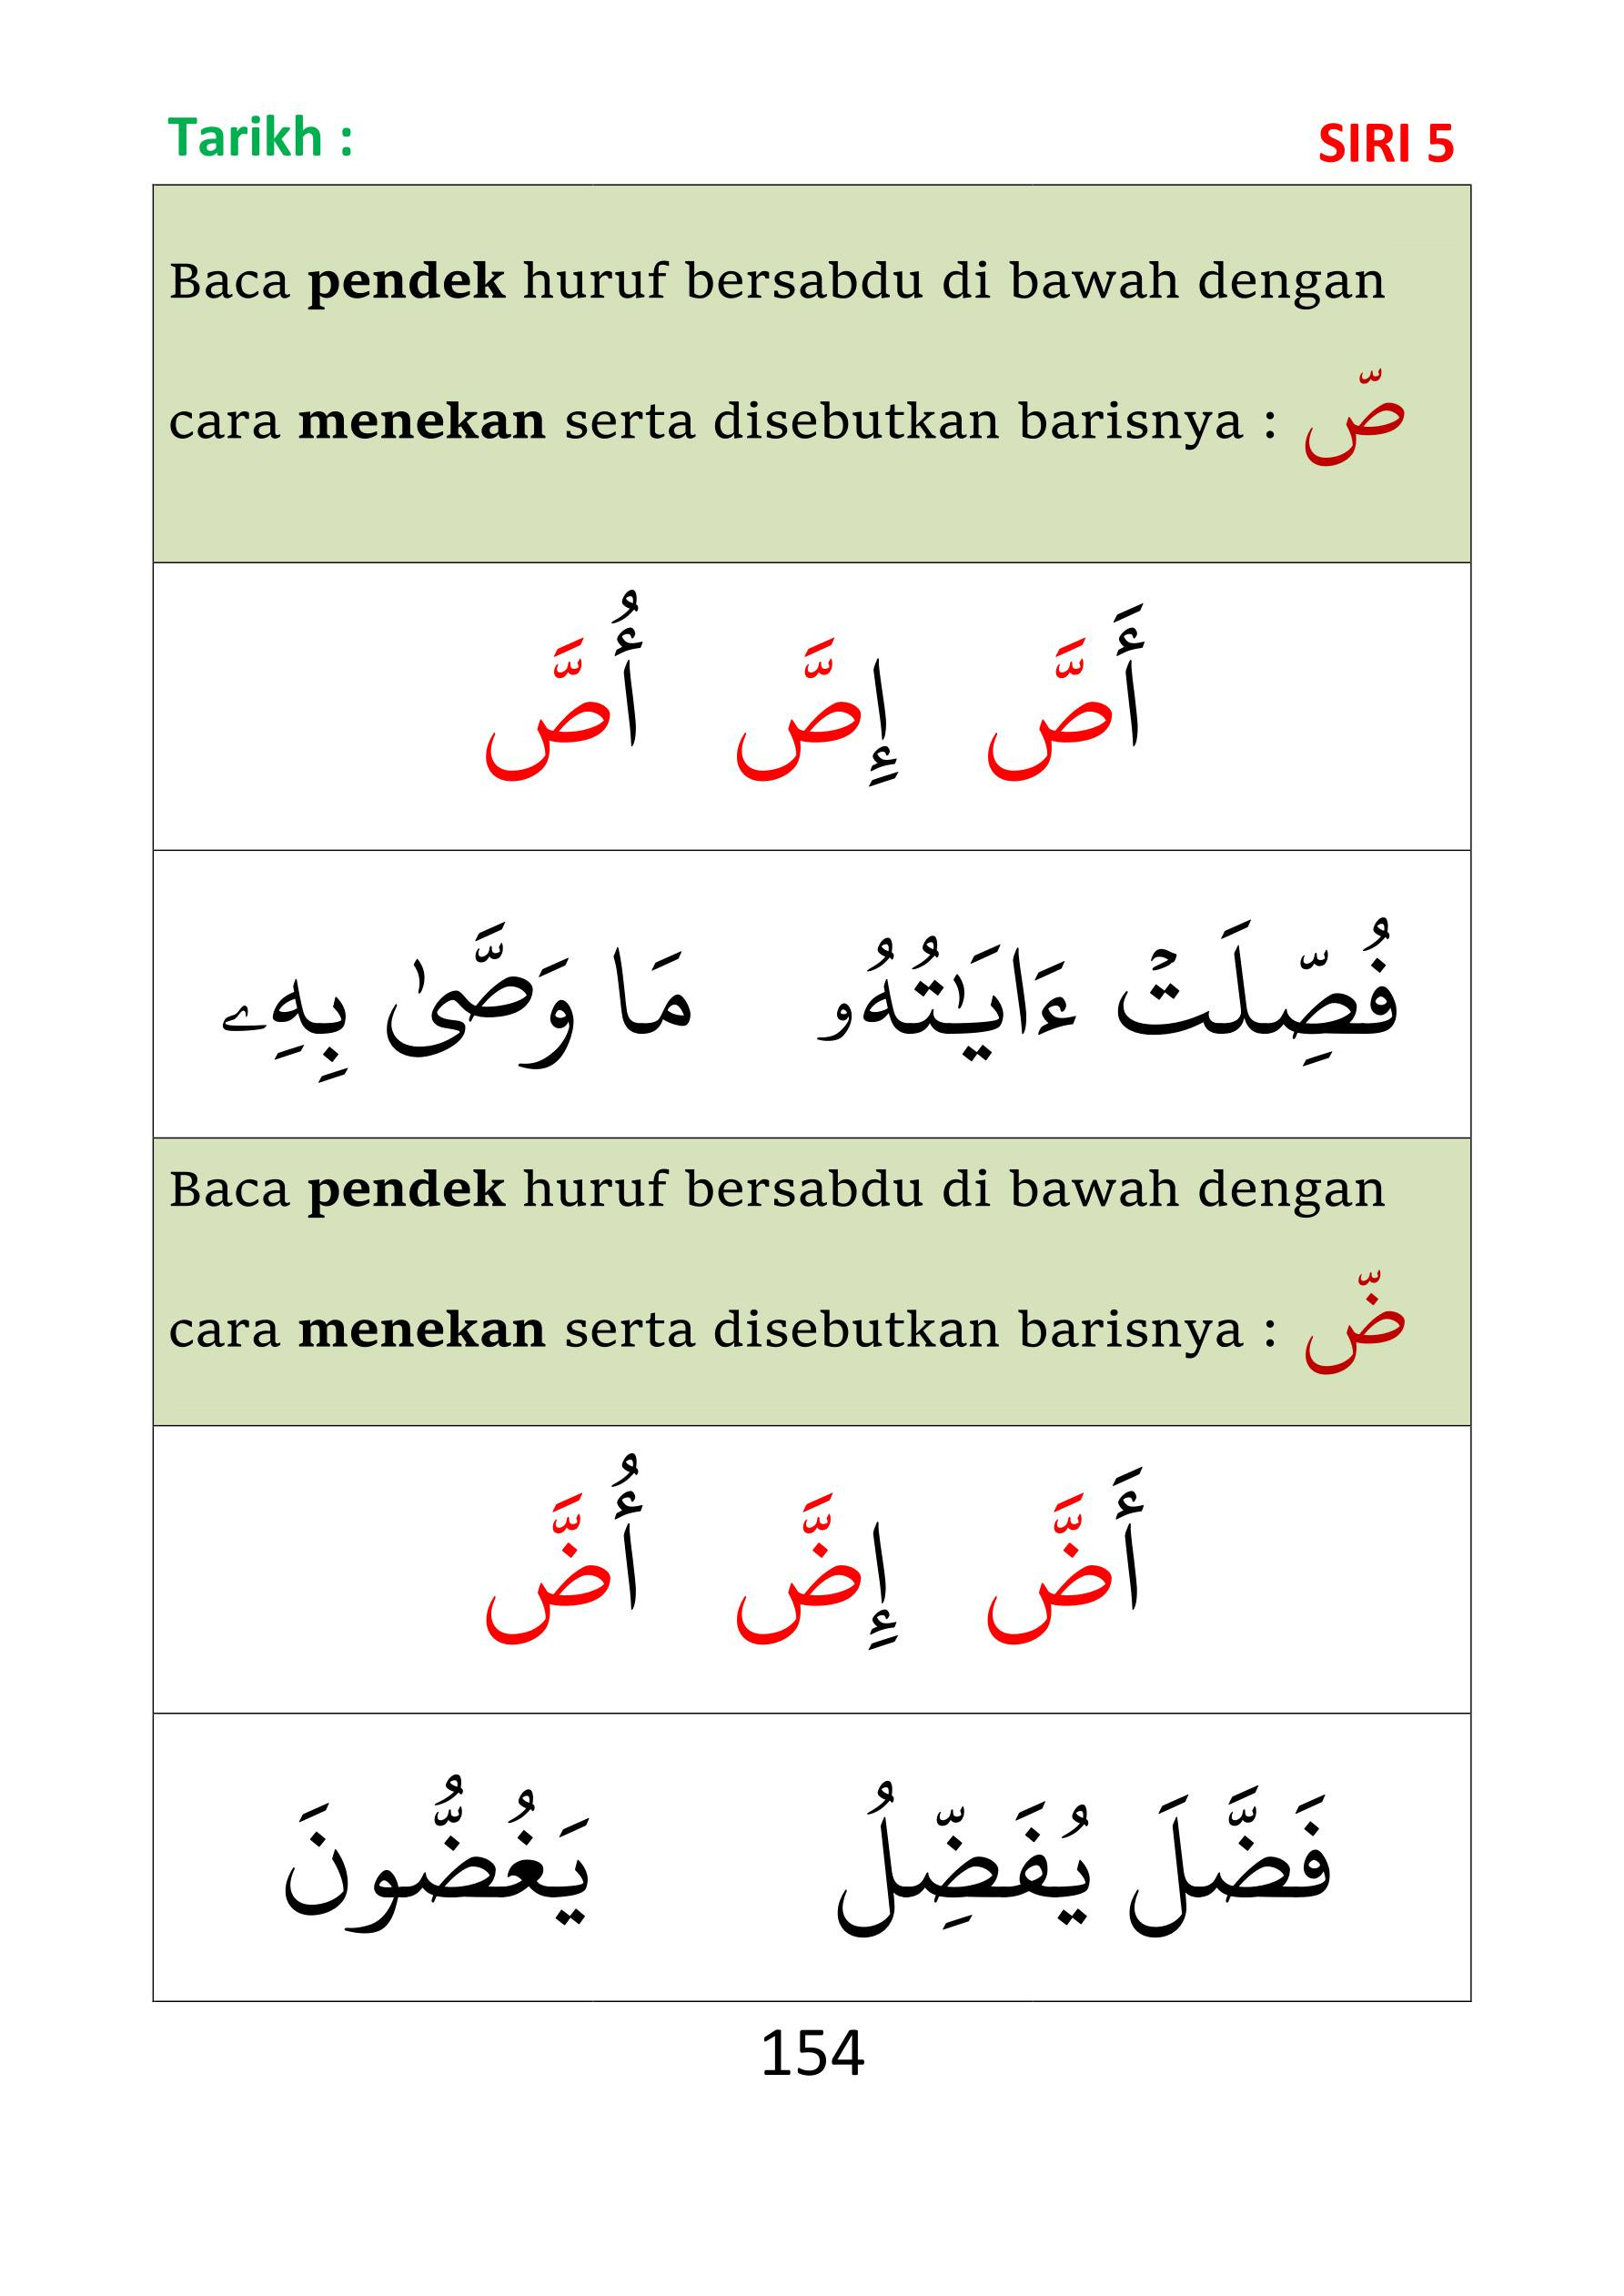 Tarikh :
SIRI 5
Baca pendek huruf bersabdu di bawah dengan
cara menekan serta disebutkan barisnya : صّ
أَصَّ إِصَّ أُصَّ
فُصِّلَتۡ ءَايَـٰتُهُۥ مَا وَصَّىٰ بِهِۦ
Baca pendek huruf bersabdu di bawah dengan
cara menekan serta disebutkan barisnya : ضّ
أَضَّ إِضَّ أُضَّ
فَضَّلَ يُفَضِّلُ يَغُضُّونَ
154